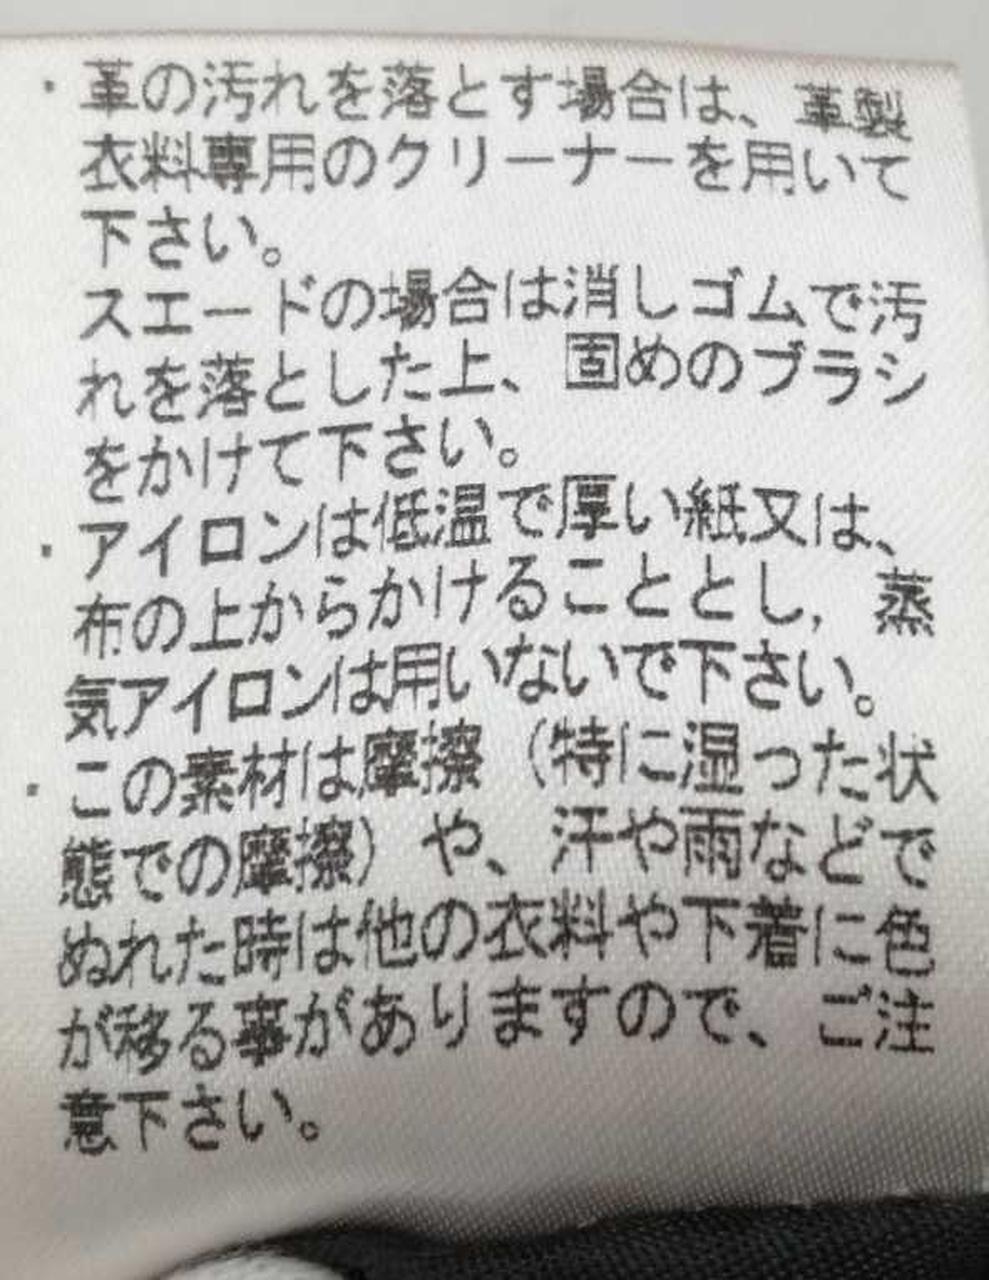 ・革の汚れを落とす場合は、革製
衣料専用のクリーナーを用いて
下さい。
スエードの場合は消しゴムで汚
れを落とした上、固めのブラシ
をかけて下さい。
・アイロンは低温で厚い紙又は、
布の上からかけることとし, 蒸
気アイロンは用いないで下さい。
・この素材は摩擦（特に湿った状
態での摩擦）や、汗や雨などで
ぬれた時は他の衣料や下着に色
が移る事がありますので、ご注
意下さい。